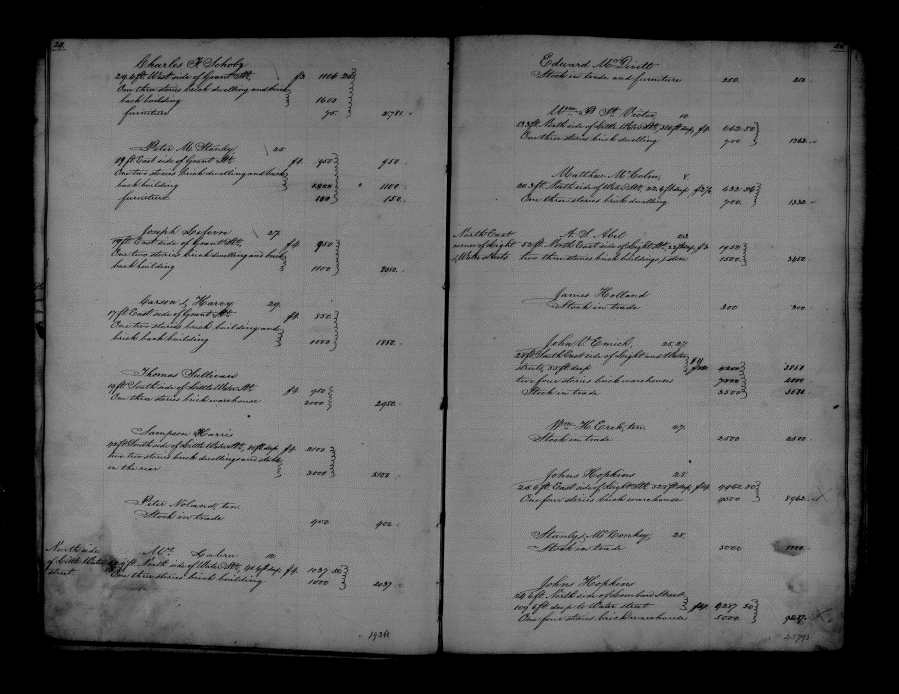 24
Charles F. Schoby
29.6 ft. West side of Grant St. f3 1106 25
One three stories brick dwelling and brick
back building 1600
furniture 75. 2781.
Peter M. Stanly 25
19 ft. East side of Grant St. f4. 950 950
One two stories brick dwelling and brick
back building 1100
furniture 150 150.
Joseph Lefevre 27.
19 ft. East side of Grant St. f4. 950
One two stories brick dwelling and brick
back building 1100 2050.
Carson & Harvy 29.
17 ft. East side of Grant St. f4. 850
One two stories brick building and
brick back building 1000 1850.
Thomas Sullivan
19 ft. South side of Little Water St. f4. 950
One three stories brick warehouse 2000 2950.
Sampson Harris
42 ft. South side of Little Water St., deep f4. 2100
two two stories brick dwellings and stable
in the rear 3000 5100
Peter Noland, ten.
Stock in trade 900 900.
North side
of Little Water
street.
Mrs. 12
ft. North side of Water St., deep f4. 1037 50
One three stories brick building 1000 2037
Edward McDivitt
Stock in trade and furniture 250. 250.
Wm. P. St. Victor, 10
13.3 ft. North side of Little Water St., deep, f4. 662 50
One three stories brick dwelling 700. 1362.
Matthew McColm, 8.
20.3 ft. North side of Water St., 22.6 ft. deep 632 36
One three stories brick dwelling 700. 1332.
North East
corner of Light
& Water streets
A. S. Abel 23.
52 ft. North East side of Light St., deep f3 1950
two three stories brick buildings 1500 3450.
James Holland
Stock in trade 300 300.
John V. Emich, 25.27.
28 ft. South East side of Light and Water
streets, 55 ft. deep 3850
two four stories brick warehouse 4000
Stock in trade 3500 3500
Wm. H. Ersk, ten. 27.
Stock in trade 2500 2500.
Johns Hopkins 28.
25.6 ft. East side of Light St. deep, f4. 4462 50
One four stories brick warehouse 4500 8962
Stanly & McConkey, 28.
Stock in trade 5000 5000
Johns Hopkins
24.6 ft. North side of Lombard Street
109.6 ft. deep to Water street f4. 4287 50
One four stories brick warehouse 5000. 9287.